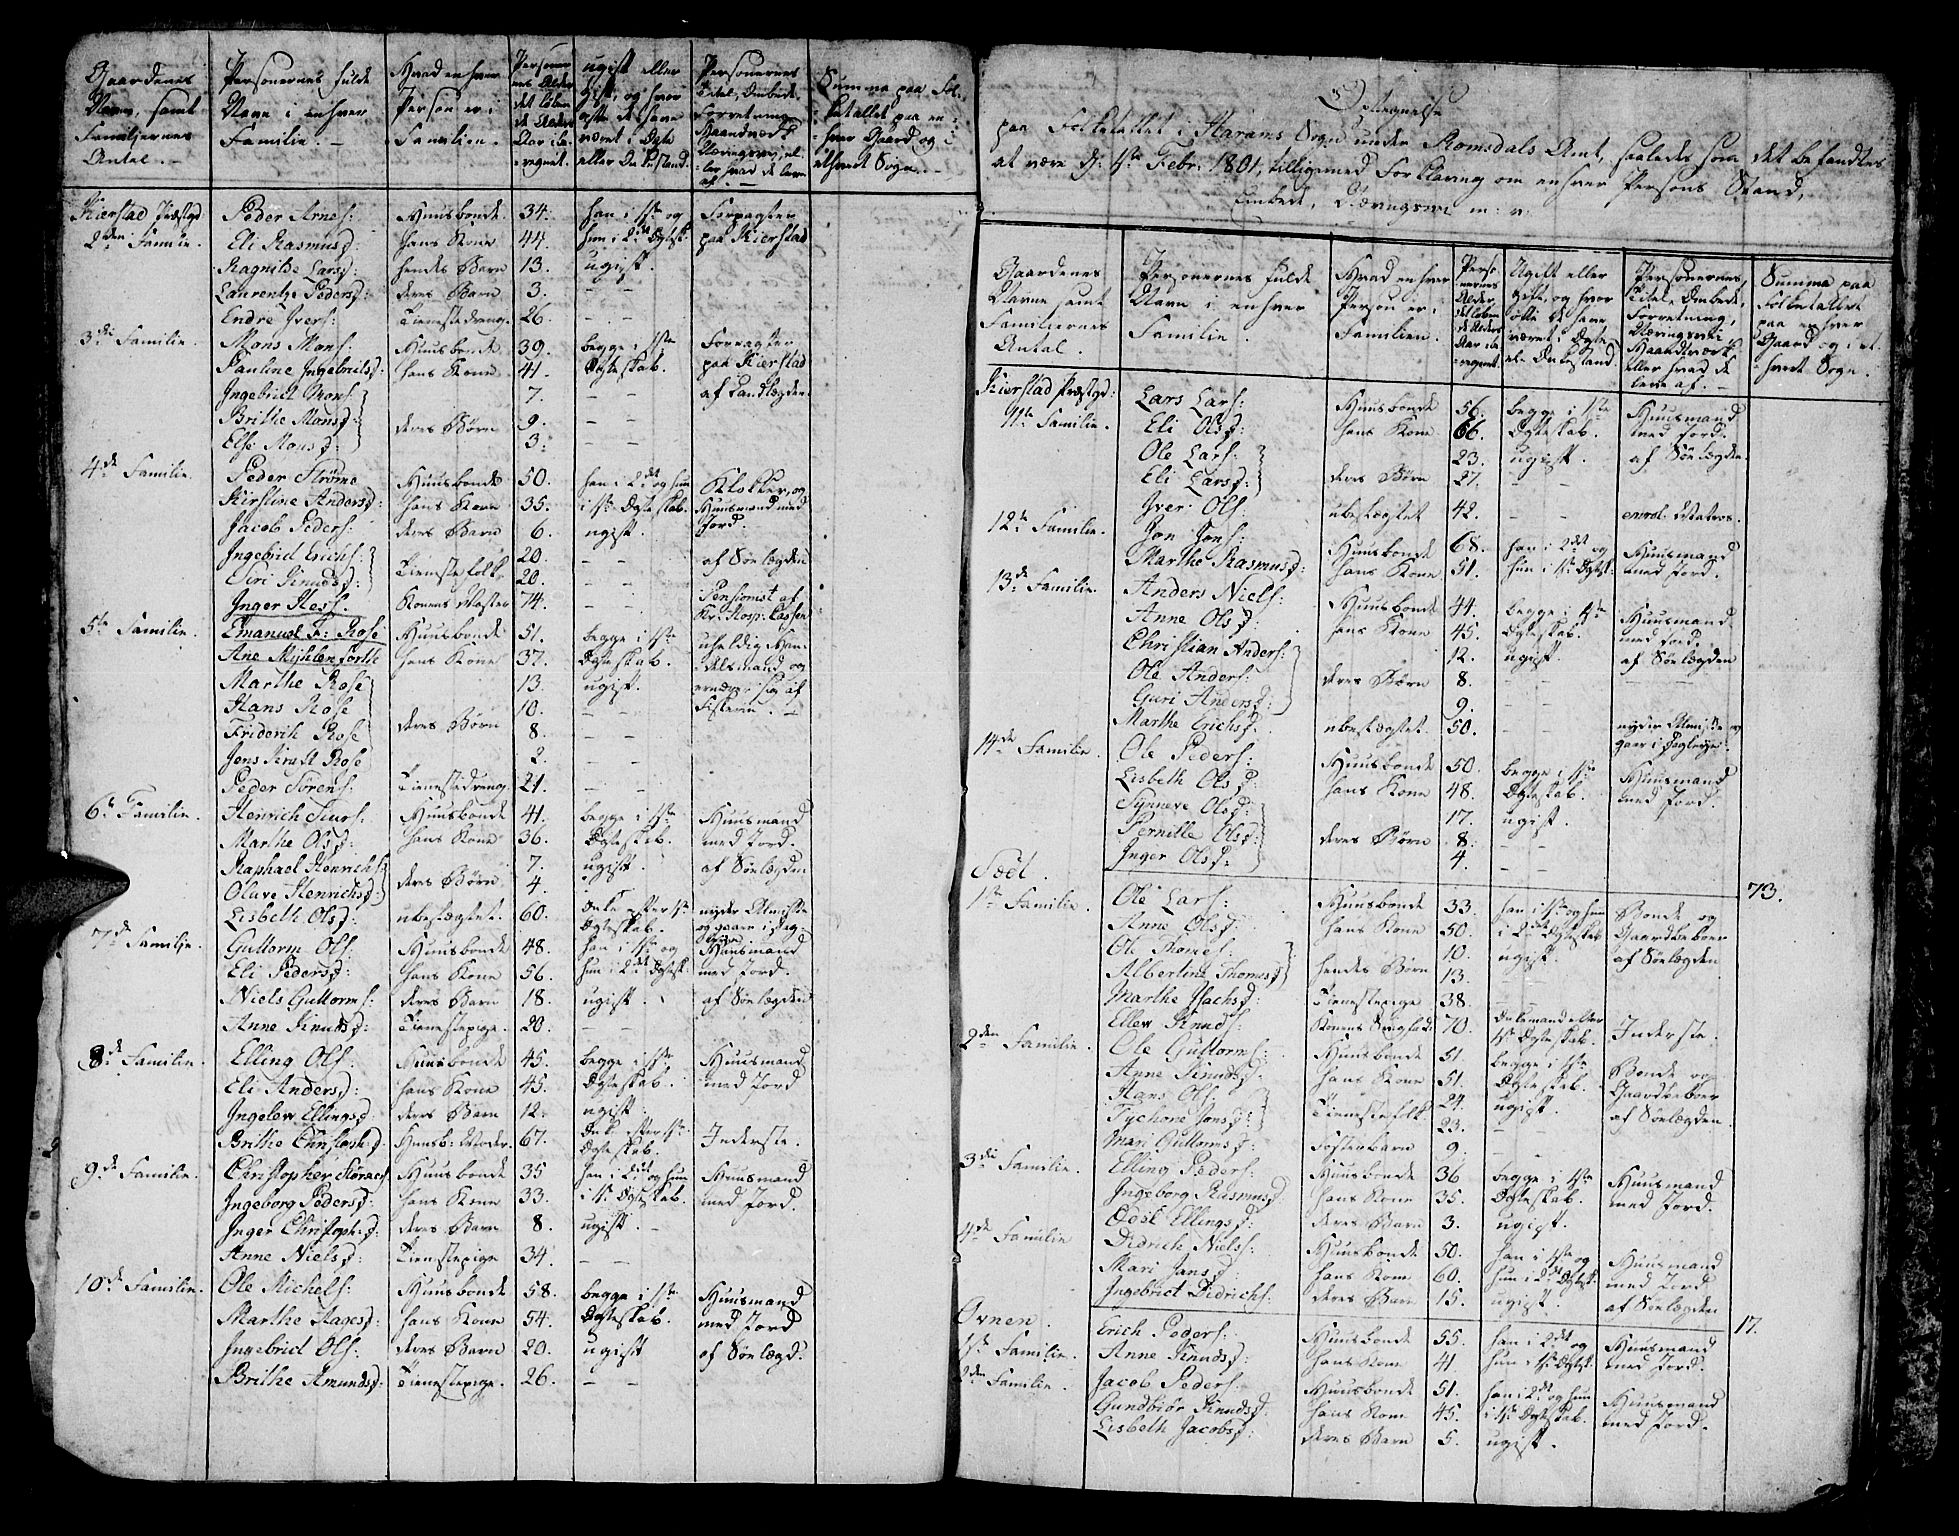 Gaardenes Navn, samt Familiernes Antal.
Personernes fulde Navn i enhver Familie.
Hvad enhver Person er i Familien.
Personernes Alder, det løbende Alders Aar iberegnet.
ugift eller gift, og hvor ofte de have været i Ægte eller Enkestand.
Personernes Titel, Embede, Forretning, Haandværk, Næringsvei, eller hvad de leve af.
Summa paa Folketallet paa enhver Gaard og i ethvert Sogn.
Kierstad Præstgd:
2den Familie. Peder Arnes: Huusbonde 34. han i 1ste og Forpagter
Eli Rasmusd: hans Kone 44. hun i 2det Ægtesk: paa Kierstad
Ragnilde Larsd: hendes Barn 13. ugift.
Laurentze Pedersd: deres Barn 3. – –
Endre Ivers: Tienestedreng. 26. – –
3die Familie. Mons Mons: Huusbonde 39. begge i 1ste Forpagter
Pauline Ingebritsd: hans Kone 41. Ægteskab. paa Kierstad
Ingebrict Mons: 7. – – af Landlægden
Brithe Monsd: deres Børn 9. – –
Else Monsd: 3. – –
4de Familie. Peder Strøme Huusbonde 50. han i 2det hun Klokker, og
Kirstine Andersd: hans Kone 35. i 1ste Ægteskab. Huusmand med
Jacob Peders: deres Barn 6. ugift. Jord.
Ingebrict Erichs: 20. – – af Søelægden
Siri Knudsd: Tienestefolk. 20. – –
Inger Hess. Konens Moster 74. – – Pensionist af
5te Familie. Emanuel F: Rose Huusbonde 51. begge i 1ste uheldig Han-
Ane Myhlenforth hans Kone 37. Ægteskab. delsmand, og
Marthe Rose 13. ugift. ernærer sig af
Hans Rose 10. – – Fiskerie.
Friderik Rose deres Børn 8. – –
Jens Krutt Rose 2. – –
Peder Sørens: Tienestedreng. 21. – –
6te Familie. Henrich Siurs: Huusbonde 41. begge i 1ste Huusmand
Marthe Olsd: hans Kone 36. Ægteskab. med Jord.
Raphael Henrichs: 7. ugift. af Søelægden
Oluve Henrichsd: deres Børn 4.
Lisbeth Olsd: ubeslægtet. 60. Enke efter 1ste Ægteskab. nyder Almisse
7de Familie. Guttorm Ols: Huusbonde 48. han i 1ste og Huusmand
Eli Pedersd: hans Kone 56. hun i 2det Ægtesk: med Jord.
Niels Guttorms: deres Barn 18. ugift. af Søelægden
Anne Knudsd: Tienestepige. 20. – –
8de Familie. Elling Ols: Huusbonde 45. begge i 1ste Huusmand
Eli Andersd: hans Kone 45. Ægteskab. med Jord
Ingelev Ellingsd: deres Barn 12. ugift.
Brithe Christophd: Husb: Moder. 67. Enke efter 1ste Ægteskab. Inderste.
9de Familie. Christopher Hans: Huusbonde 35 han i 2det og hun Huusmand
Ingeborg Pedersd: hans Kone 33. i 1ste Ægteskab. med Jord.
Inger Christoph:d: deres Barn 8. ugift.
Anne Nielsd: Tienestepige 34. – –
10de Familie. Ole Michels: Huusbonde 58. begge i 1ste Huusmand
Marthe Aagesd: hans Kone 54. Ægteskab. med Jord
Ingebrict Ols: deres Barn 20. ugift af Søelægd:
Brithe Amundsd: Tienestepige. 26. – –
Optegnelse
paa Folketallet i Harams Sogn under Romsdals Amt, saaledes som det befandtes
at være d: 1ste Febr: 1801, tilligemed Forklaring om enhver Persons Stand,
Embede, Næringsvei m: v:
Gaardenes Navne samt Familiernes Antal.
Personernes fulde Navn i enhver Familie.
Hvad enhver Person er i Familien.
Personernes Alder, det løbende Alders Aar iberegnet.
Ugift eller gift, og hvor ofte de have været i Ægte el: Enkestand.
Personernes Titel, Embede, Forretning, Næringsvei Haandværk, eller hvad de leve af.
Summa paa Folketallet paa enhver Gaard og i ethvert Sogn.
Kierstad Præstgd:
11te Familie. Lars Lars: Huusbonde 56. begge i 1ste Huusmand
Eli Olsd: hans Kone 66. Ægteskab. med Jord.
Ole Lars: 23. ugift. af Søelægden
Eli Larsd: deres Børn 27. – –
Iver Ols: ubeslægtet 42. – – enrol: Matros.
12te Familie. Jon Jons: Huusbonde 68. han i 2det og Huusmand
Marthe Rasmusd: hans Kone 51. hun i 1ste Ægtesk: med Jord.
13de Familie. Anders Niels: Huusbonde 44. begge i 1ste Huusmand
Anne Olsd: hans Kone 45. Ægteskab. med Jord.
Christian Anders: 12. ugift. af Søelægden
Ole Anders: deres Børn 8. – –
Guri Andersd: 9. – –
Marthe Erichsd: ubeslægtet. 50. – – nyder Almisse og
14de Familie. Ole Peders: Huusbonde 50. begge i 1ste Huusmand
Lisbeth Olsd: hans Kone 48. Ægteskab. med Jord.
Synneve Olsd: 17. ugift.
Pernille Olsd: deres Børn 8. – –
Inger Olsd: 4. – –
73.
1ste Familie. Ole Lars: Huusbonde 33. han i 1ste og hun Bonde og
Anne Olsd: hans Kone 50. i 2det Ægteskab Gaardbeboer
Ole Thomes: 10. ugift. af Søelægden
Albertine Thomesd: hendes Børn 13. – –
Marthe Isachsd: Tienestepige 38. – –
Ellev Knuds: 70. Enkemand efter 1ste Ægteskab. Inderste.
2den Familie. Ole Guttorms: Huusbonde 51. begge i 1ste Bonde og
Anne Knudsd: hans Kone 51. Ægteskab. Gaardbeboer
Hans Ols: 24. ugift. af Søelægden.
Tychone Jonsd: Tienestefolk 23. – –
Mari Guttormsd: Fosterbarn 9. – –
3die Familie. Elling Peders: Huusbonde 36 begge i 1ste Huusmand
Ingeborg Rasmusd: hans Kone 35. Ægteskab. med Jord.
Odsk Ellingsd: deres Barn 3. ugift.
4de Familie Didrich Niels: Huusbonde 50. han i 1ste og Huusmand
Mari Jansd: hans Kone 60. hun i 2det Ægtesk. med Jord
Ingebrict Didrichs: deres Barn 15. ugift. af Søelægden
17.
Øvnen.
1ste Familie. Erich Peders: Huusbonde 55. han i 2det og Huusmand
Anne Knudsd: hans Kone 41. hun i 1ste Ægtesk: med Jord.
2den Familie. Jacob Peders: Huusbonde 51. han i 2det og hun Huusmand
Gundbiør Knudsd: hans Kone 45. i 1ste Ægteskab. med Jord.
Lisbeth Jacobsd: deres Barn 5. ugift.